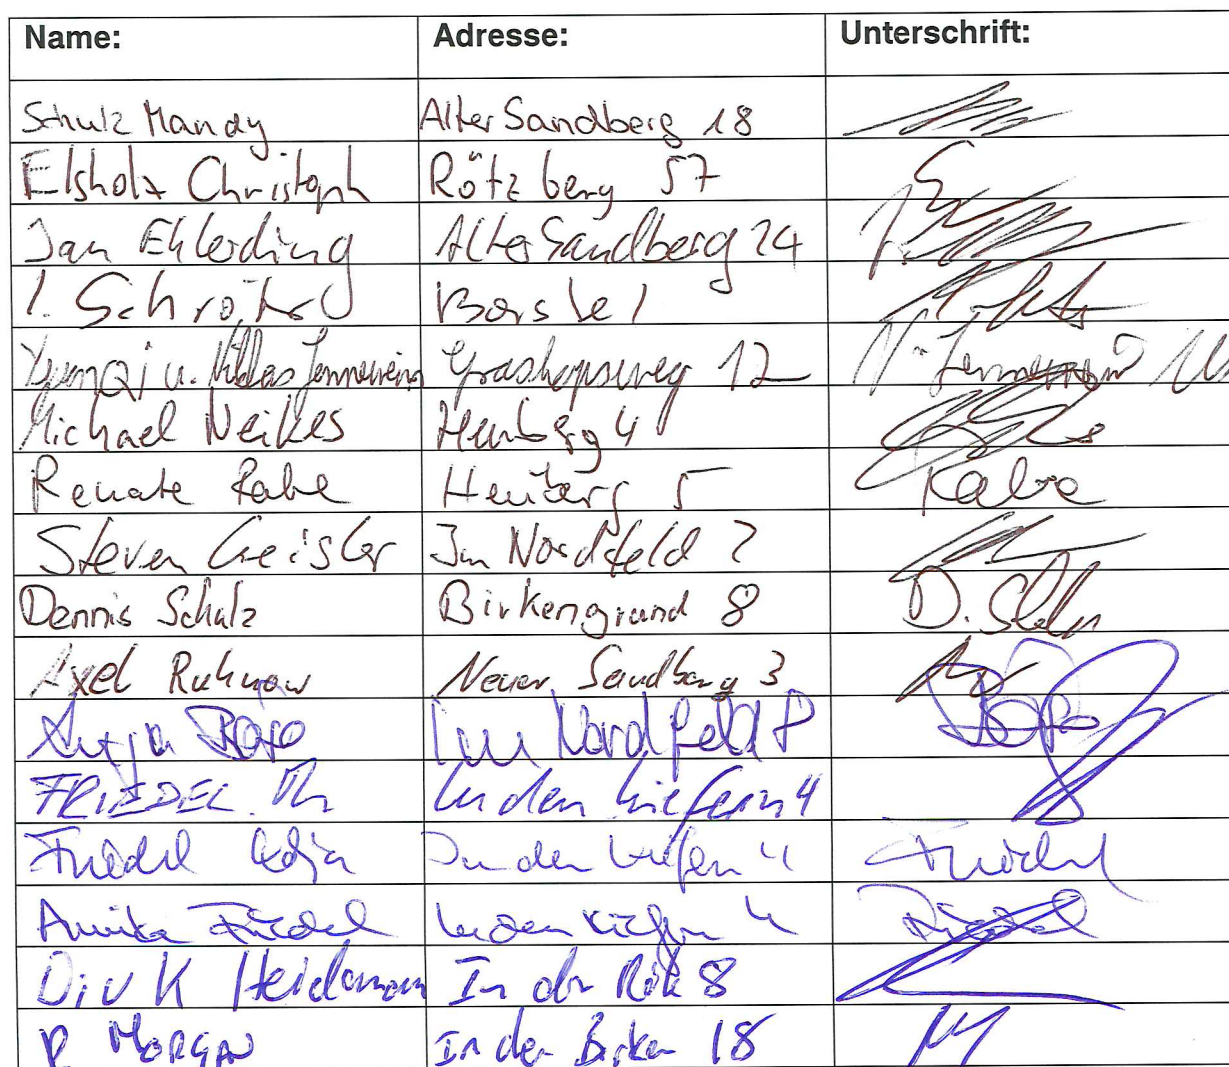 Name: Adresse: Unterschrift:
Schulz Mandy Alter Sandberg 18
Elsholz Christoph Rötzberg 57
Jan Ehlerding Alter Sandberg 24
I. Schröter Borstel 1
u. Niklas Jennewein 12 N. Jennewein
Michael Neikes Heuberg 4
Renate Rabe Heuberg 5 Rabe
Steven Geisler Im Nordfeld 2
Dennis Schulz Birkengrund 8 D.
Axel Ruhnow Neuer Sandberg 3
Im Nordfeld
FRIEDEL In den Kiefern 4
Friedel In den Kiefern 4 Friedel
Annika Friedel In den Kiefern 4 Friedel
Dirk Heidemann In der 8
MORGAN In den Birken 18